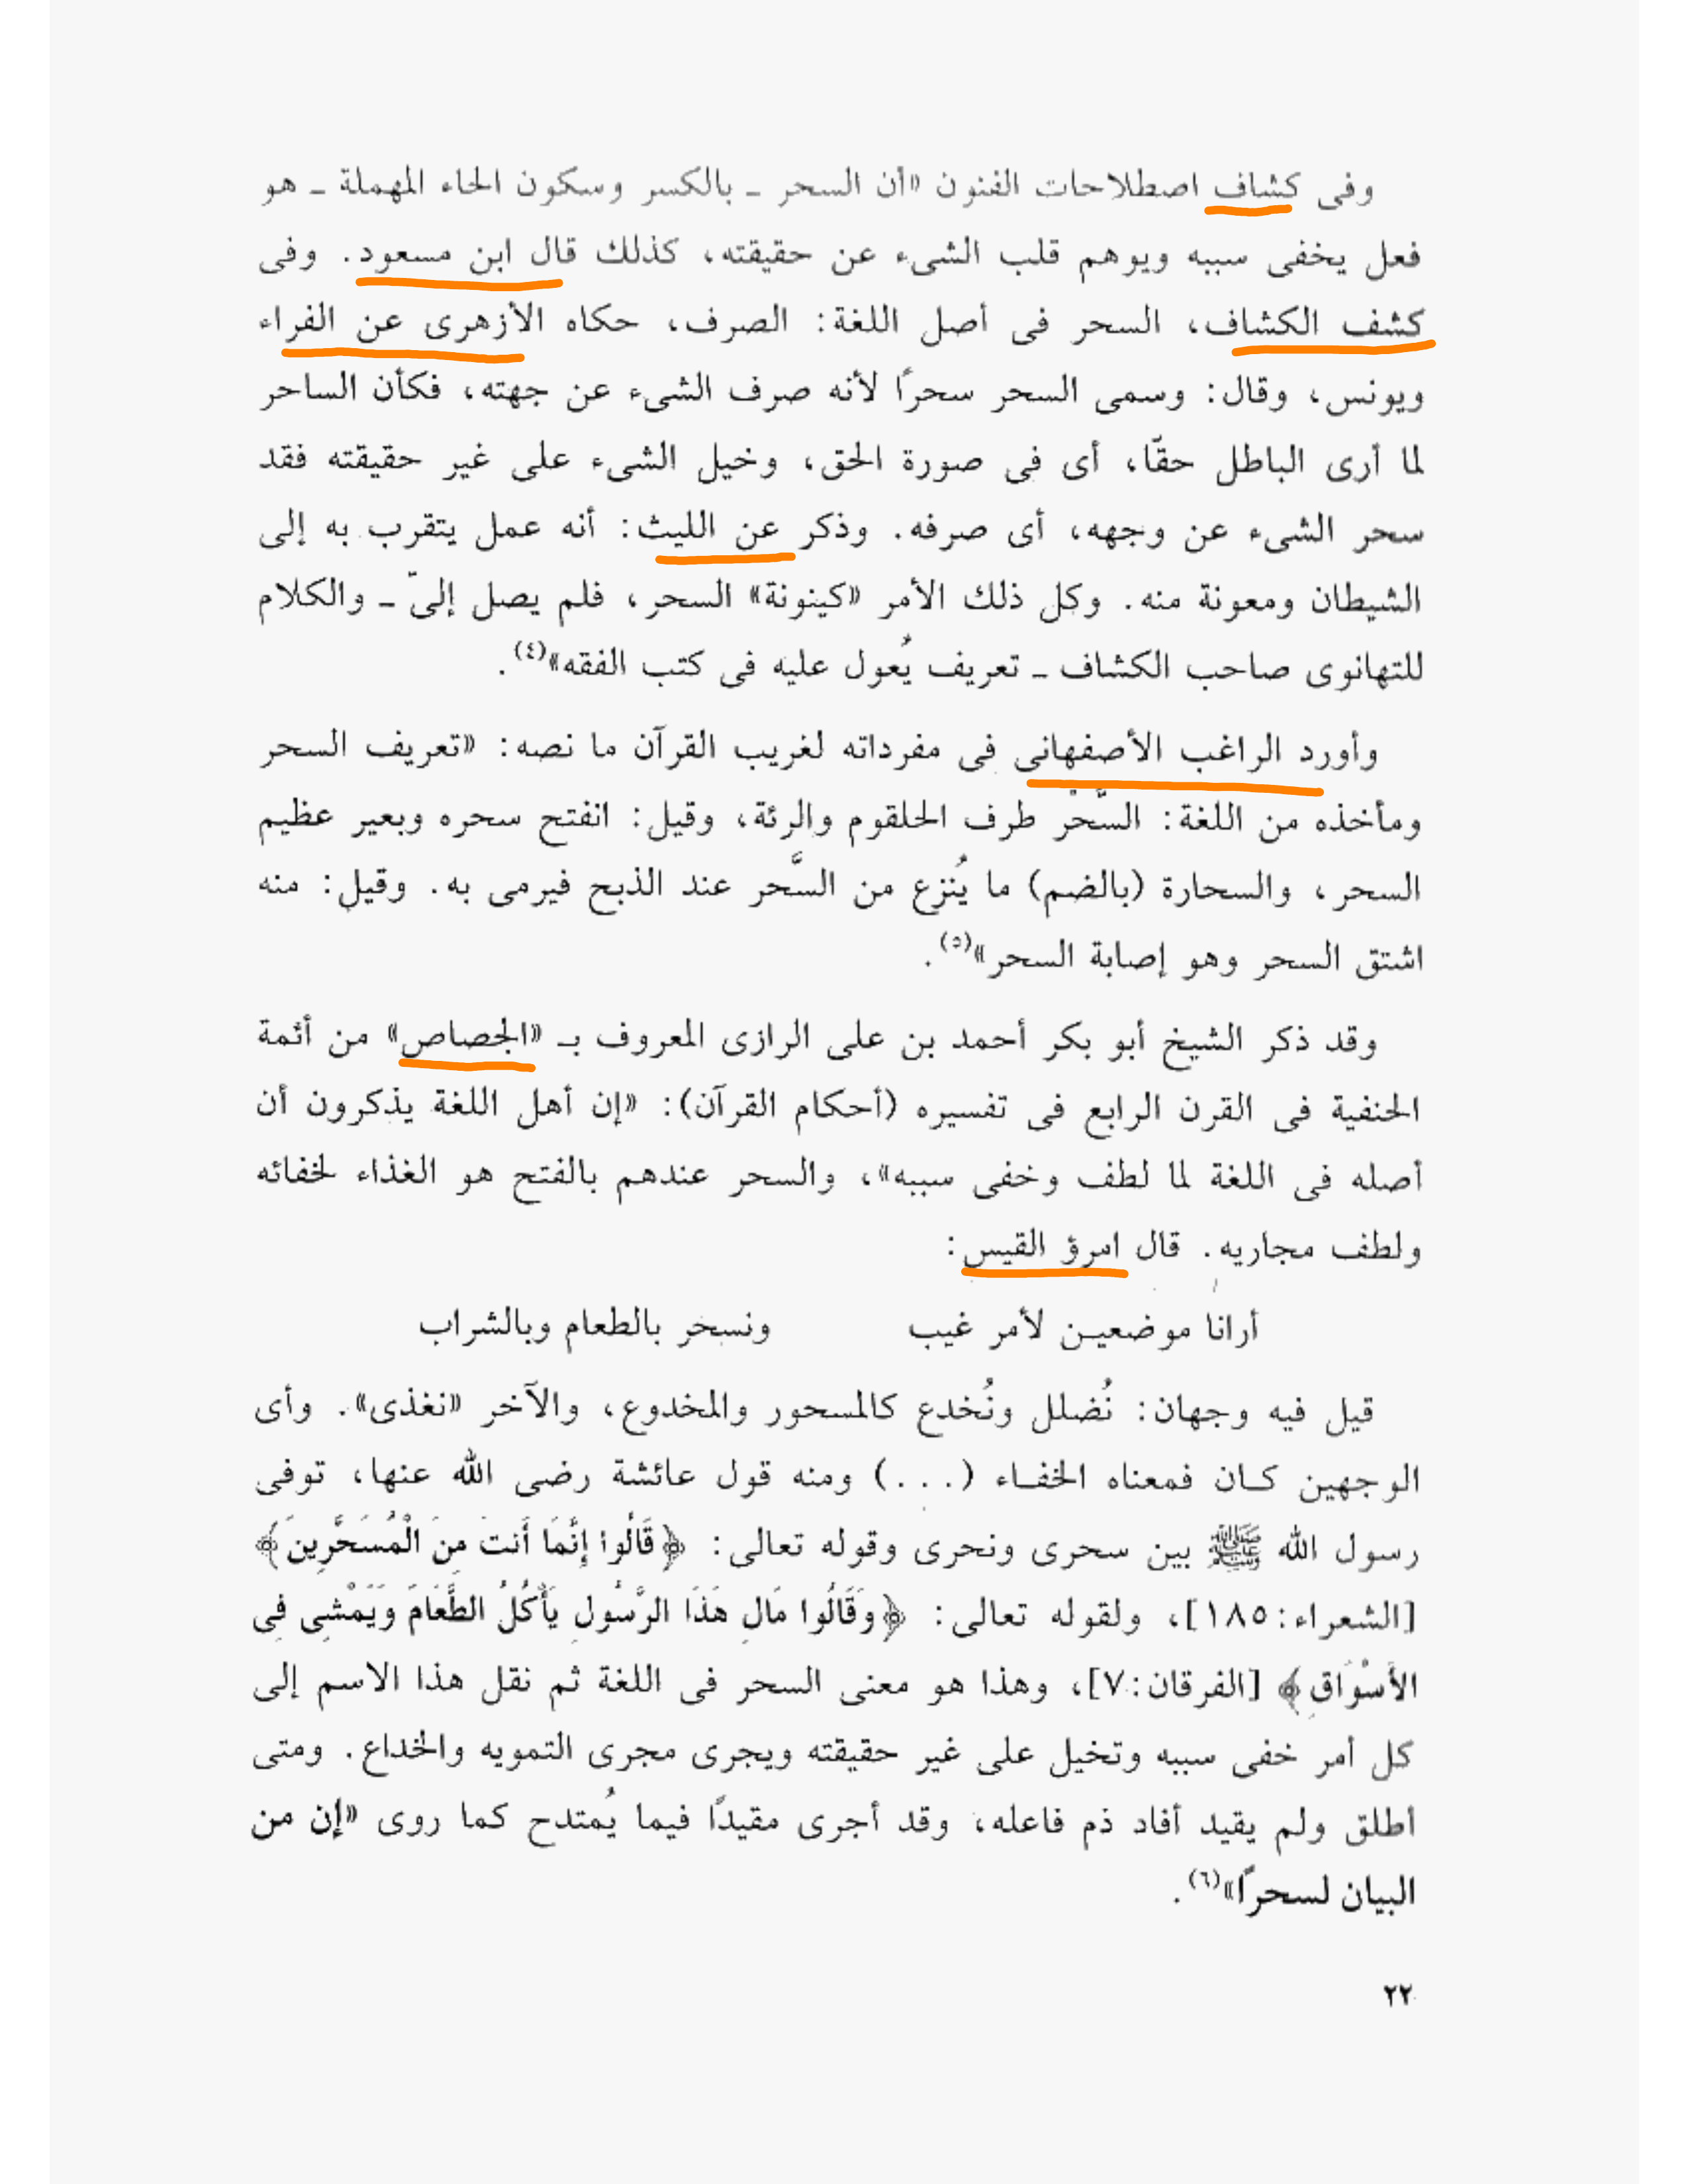 وفى كشاف اصطلاحات الفنون «أن السحر ـ بالكسر وسكون الحاء المهملة ـ هو
فعل يخفى سببه ويوهم قلب الشىء عن حقيقته، كذلك قال ابن مسعود. وفى
كشف الكشاف، السحر فى أصل اللغة: الصرف، حكاه الأزهرى عن الفراء
ويونس، وقال: وسمى السحر سحرًا لأنه صرف الشىء عن جهته، فكأن الساحر
لما أرى الباطل حقّا، أى فى صورة الحق، وخيل الشىء على غير حقيقته فقد
سحر الشىء عن وجهه، أى صرفه. وذكر عن الليث: أنه عمل يتقرب به إلى
الشيطان ومعونة منه. وكل ذلك الأمر «كينونة» السحر، فلم يصل إلىّ ـ والكلام
للتهانوى صاحب الكشاف ـ تعريف يُعول عليه فى كتب الفقه»(٤).
وأورد الراغب الأصفهانى فى مفرداته لغريب القرآن ما نصه: «تعريف السحر
ومأخذه من اللغة: السَّحْر طرف الحلقوم والرئة، وقيل: انفتح سحره وبعير عظيم
السحر، والسحارة (بالضم) ما يُنزع من السَّحر عند الذبح فيرمى به. وقيل: منه
اشتق السحر وهو إصابة السحر»(٥).
وقد ذكر الشيخ أبو بكر أحمد بن على الرازى المعروف بـ «الجصاص» من أئمة
الحنفية فى القرن الرابع فى تفسيره (أحكام القرآن): «إن أهل اللغة يذكرون أن
أصله فى اللغة لما لطف وخفى سببه»، والسحر عندهم بالفتح هو الغذاء لخفائه
ولطف مجاريه. قال امرؤ القيس:
أرانا موضعين لأمر غيب ونسحر بالطعام وبالشراب
قيل فيه وجهان: نُضلل ونُخدع كالمسحور والمخدوع، والآخر «نغذى». وأى
الوجهين كان فمعناه الخفاء (...) ومنه قول عائشة رضى الله عنها، توفى
رسول الله ﷺ بين سحرى ونحرى وقوله تعالى: ﴿قَالُوا إِنَّمَا أَنتَ مِنَ الْمُسَحَّرِينَ﴾
[الشعراء: ١٨٥]، ولقوله تعالى: ﴿وَقَالُوا مَالِ هَذَا الرَّسُولِ يَأْكُلُ الطَّعَامَ وَيَمْشِى فِى
الأَسْوَاقِ﴾ [الفرقان: ٧]، وهذا هو معنى السحر فى اللغة ثم نقل هذا الاسم إلى
كل أمر خفى سببه وتخيل على غير حقيقته ويجرى مجرى التمويه والخداع. ومتى
أطلق ولم يقيد أفاد ذم فاعله، وقد أجرى مقيدًا فيما يُمتدح كما روى «إن من
البيان لسحرًا»(٦).
٢٢